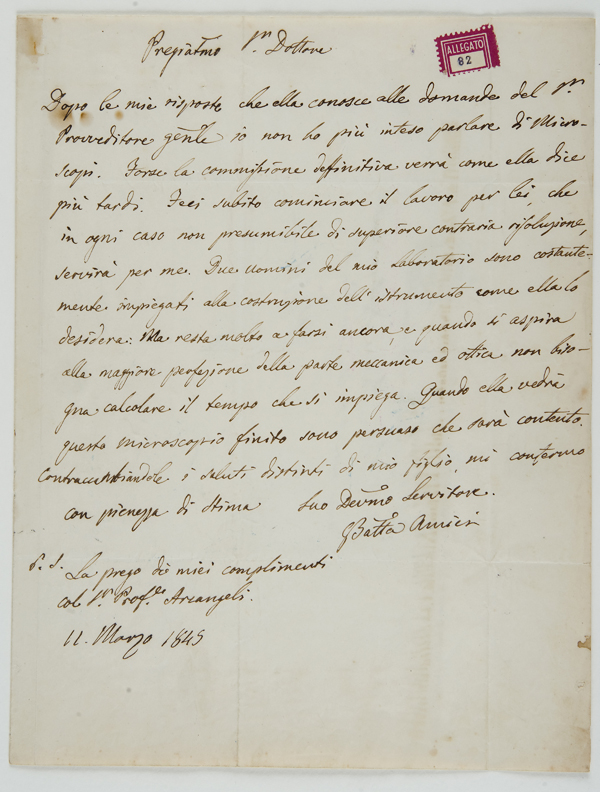 ALLEGATO
82
Pregiatmo Sr. Dottore
Dopo le mie risposte che ella conosce alle domande del Sr.
Provveditore gentle io non ho più inteso parlare di Micro-
scopi. Forse la commissione deffinitiva verrà come ella dice
più tardi. Feci subito cominciare il lavoro per lei, che
in ogni caso non presumibile di superiore contraria risoluzione,
servirà per me. Due uomini del mio laboratorio sono costante-
mente impiegati alla costruzione dell'istrumento come ella lo
desidera: Ma resta molto a farsi ancora, e quando si aspira
alla maggiore perfezione della parte meccanica ed ottica non biso-
gna calcolare il tempo che si impiega. Quando ella vedrà
questo microscopio finito sono persuaso che sarà contento.
Contracambiandole i saluti distinti di mio figlio, mi confermo
con pienezza di stima suo Devmo Servitore.
GBatta Amici
P. S. La prego dè miei complimenti
col Sr. Profre Arcangeli.
11. Marzo 1845